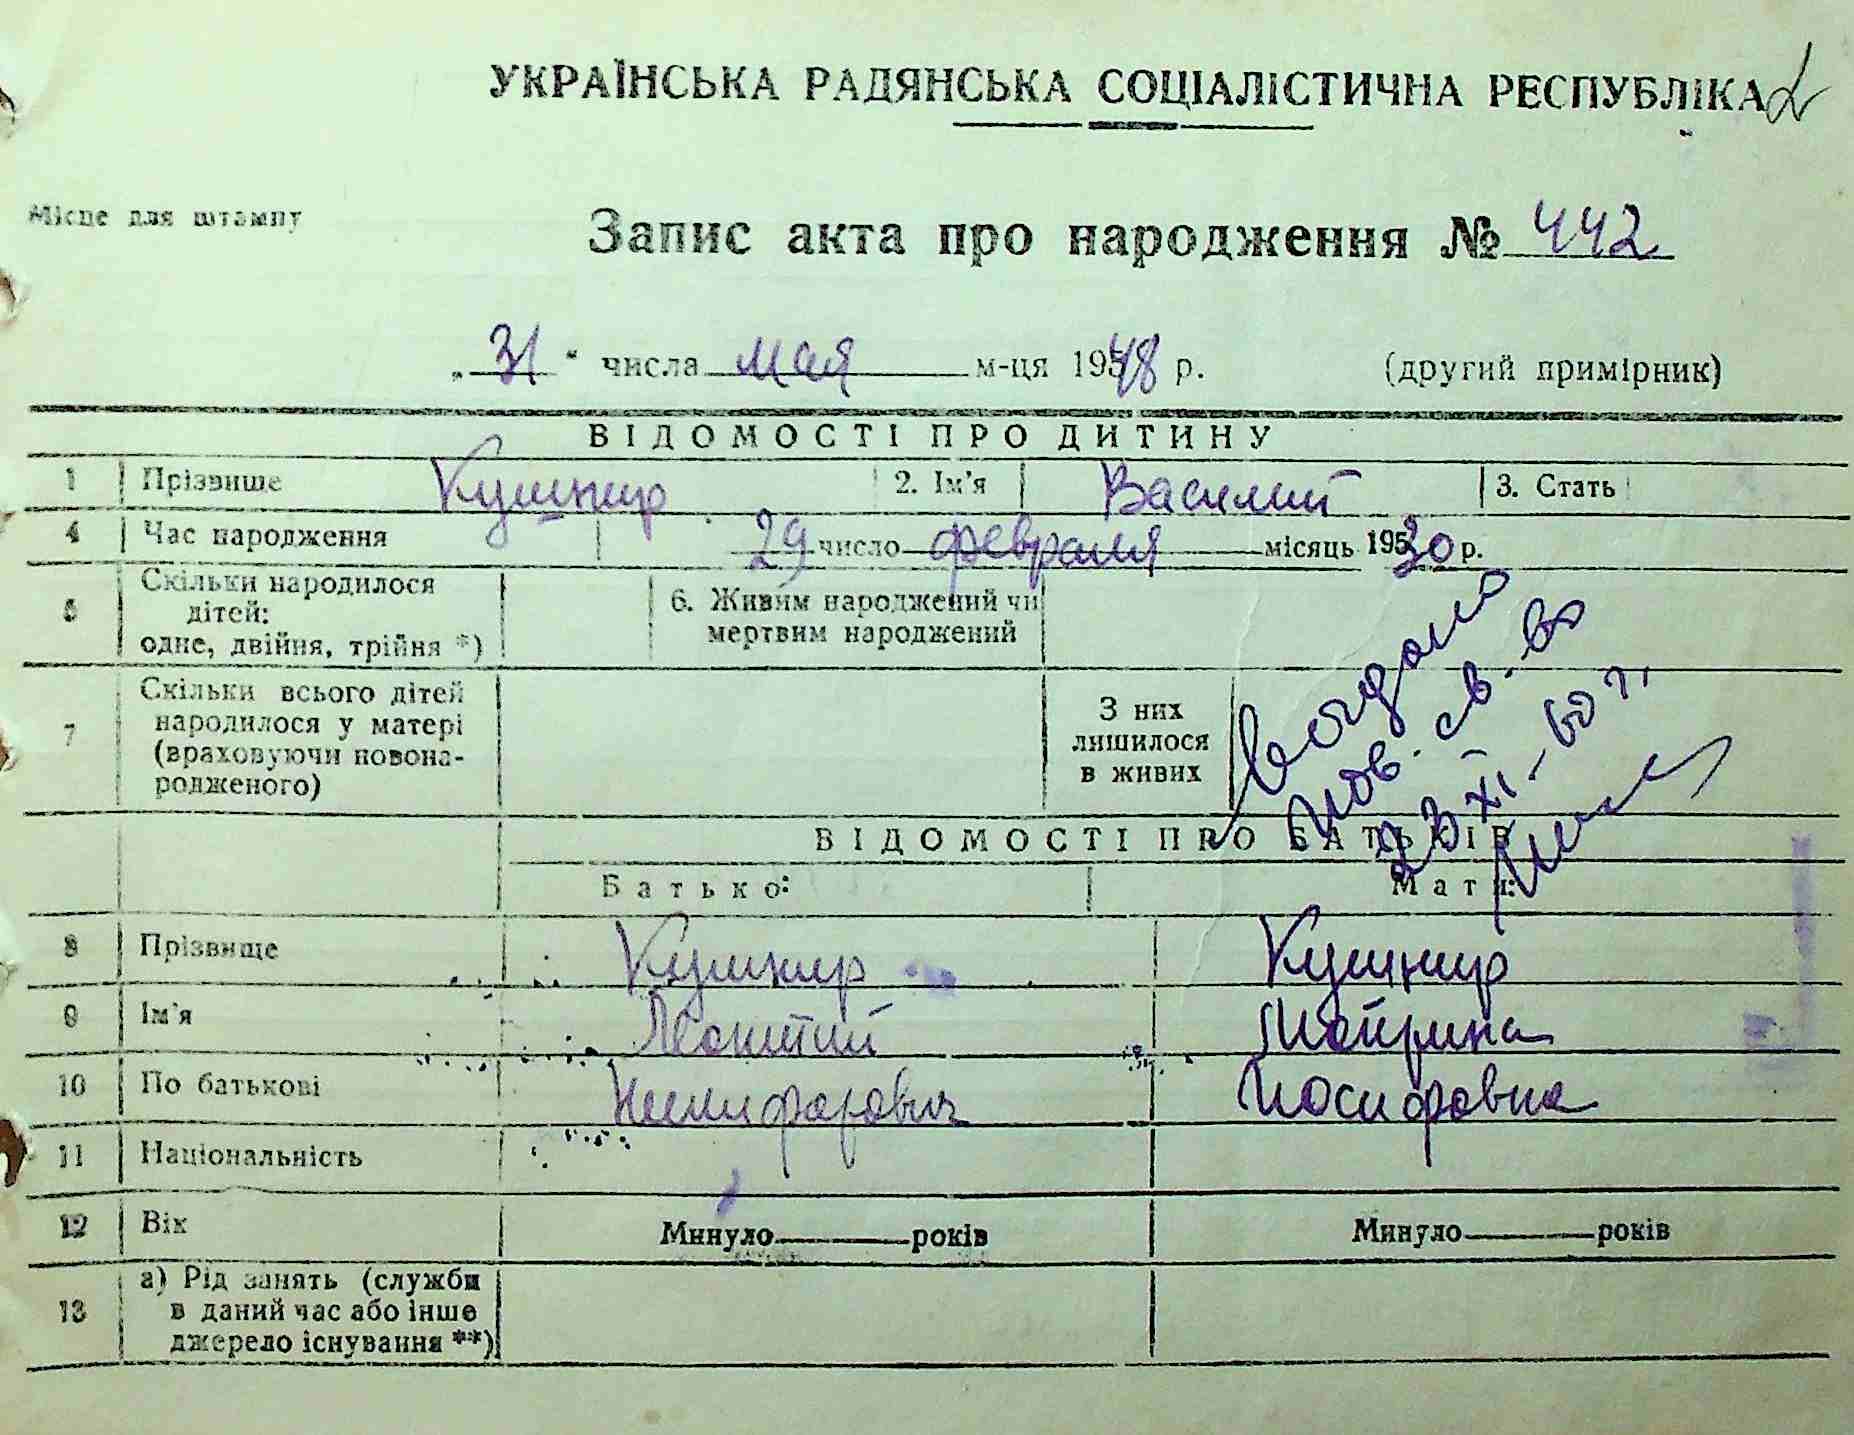 УКРАЇНСЬКА РАДЯНСЬКА СОЦІАЛІСТИЧНА РЕСПУБЛІКА
Місце для штампу
Запис акта про народження № 442
„31“ числа мая м-ця 1948 р. (другий примірник)
ВІДОМОСТІ ПРО ДИТИНУ
1 Прізвище Кушнир 2. Ім'я Василий 3. Стать
4 Час народження 29 число февраля місяць 1930 р.
5 Скільки народилося дітей: одне, двійня, трійня *) 6. Живим народжений чи мертвим народжений
7 Скільки всього дітей народилося у матері (враховуючи новонародженого) З них лишилося в живих
выдано
пов. св-во
23 XI-60 г.
ВІДОМОСТІ ПРО БАТЬКІВ
Батько: Мати:
8 Прізвище Кушнир Кушнир
9 Ім'я Леонтий Мотрина
10 По батькові Никифорович Иосифовна
11 Національність
12 Вік Минуло років Минуло років
13 а) Рід занять (служби в даний час або інше джерело існування **)